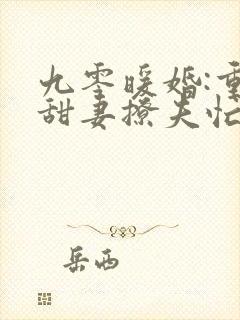 九零暖婚:重
甜妻撩夫忙
岳西